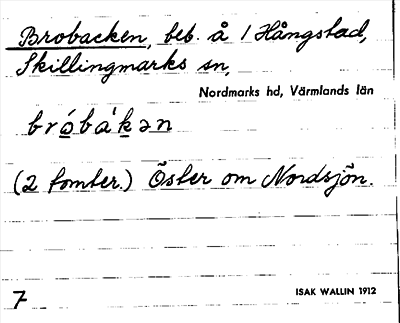 Brobacken, beb. å 1 Hångstad,
Skillingmarks sn,
Nordmarks hd, Värmlands län
bróbàkən
(2 tomter.) Öster om Nordsjön.
7
ISAK WALLIN 1912